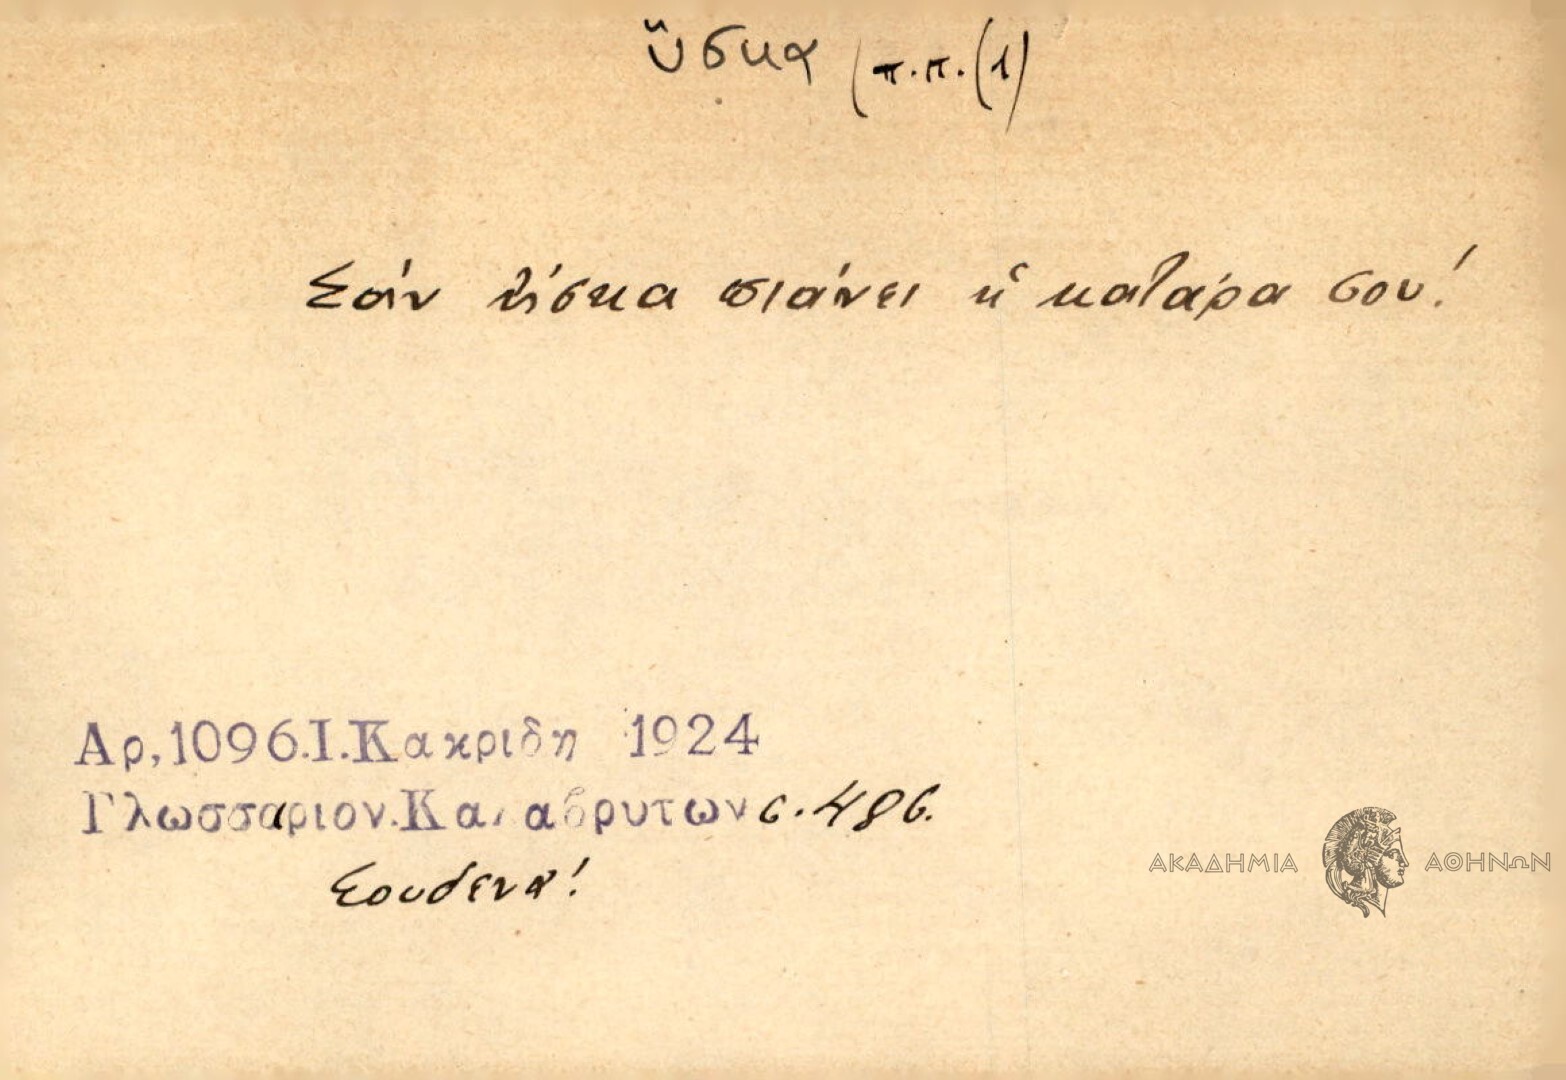 ὕσκα (π.π.(1)
Σάν ὕσκα πιάνει ἡ κατάρα σου!
Αρ,1096.Ι.Κακριδη 1924
Γλωσσαριον.Καλαβρυτων σ.486.
Σουδενα!
ΑΚΑΔΗΜΙΑ ΑΘΗΝΩΝ